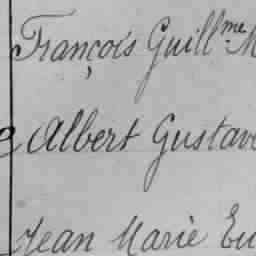 François Guill.me M
Albert Gustave
Jean Marie Eu